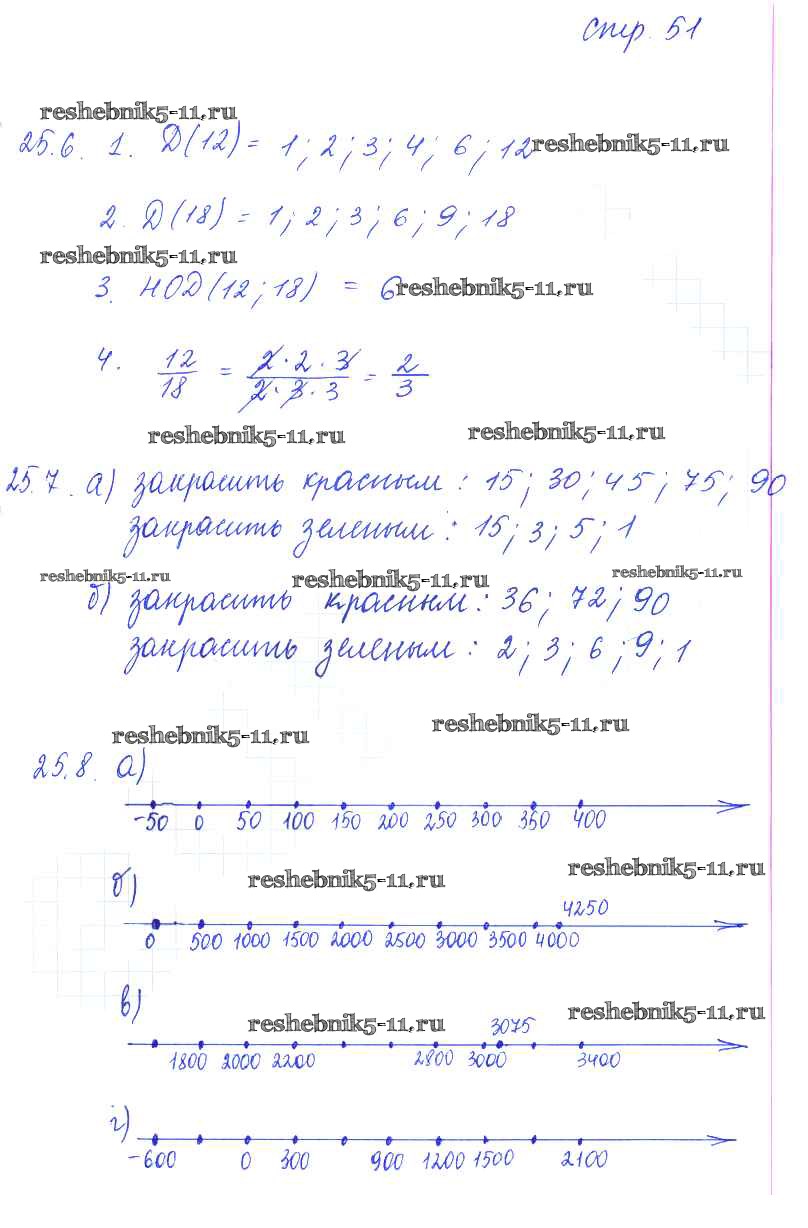 стр. 51
reshebnik5-11.ru
25.6. 1. D(12) = 1; 2; 3; 4; 6; 12
reshebnik5-11.ru
2. D(18) = 1; 2; 3; 6; 9; 18
reshebnik5-11.ru
3. НОD(12; 18) = 6
reshebnik5-11.ru
4. 12/18 = 2·2·3/2·3·3 = 2/3
reshebnik5-11.ru reshebnik5-11.ru
25.7. а) закрасить красным: 15; 30; 45; 75; 90
закрасить зеленым: 15; 3; 5; 1
reshebnik5-11.ru reshebnik5-11.ru reshebnik5-11.ru
б) закрасить красным: 36; 72; 90
закрасить зеленым: 2; 3; 6; 9; 1
reshebnik5-11.ru reshebnik5-11.ru
25.8. а)
-50 0 50 100 150 200 250 300 350 400
б) reshebnik5-11.ru reshebnik5-11.ru
4250
0 500 1000 1500 2000 2500 3000 3500 4000
в) reshebnik5-11.ru reshebnik5-11.ru
3075
1800 2000 2200 2800 3000 3400
г)
-600 0 300 900 1200 1500 2100